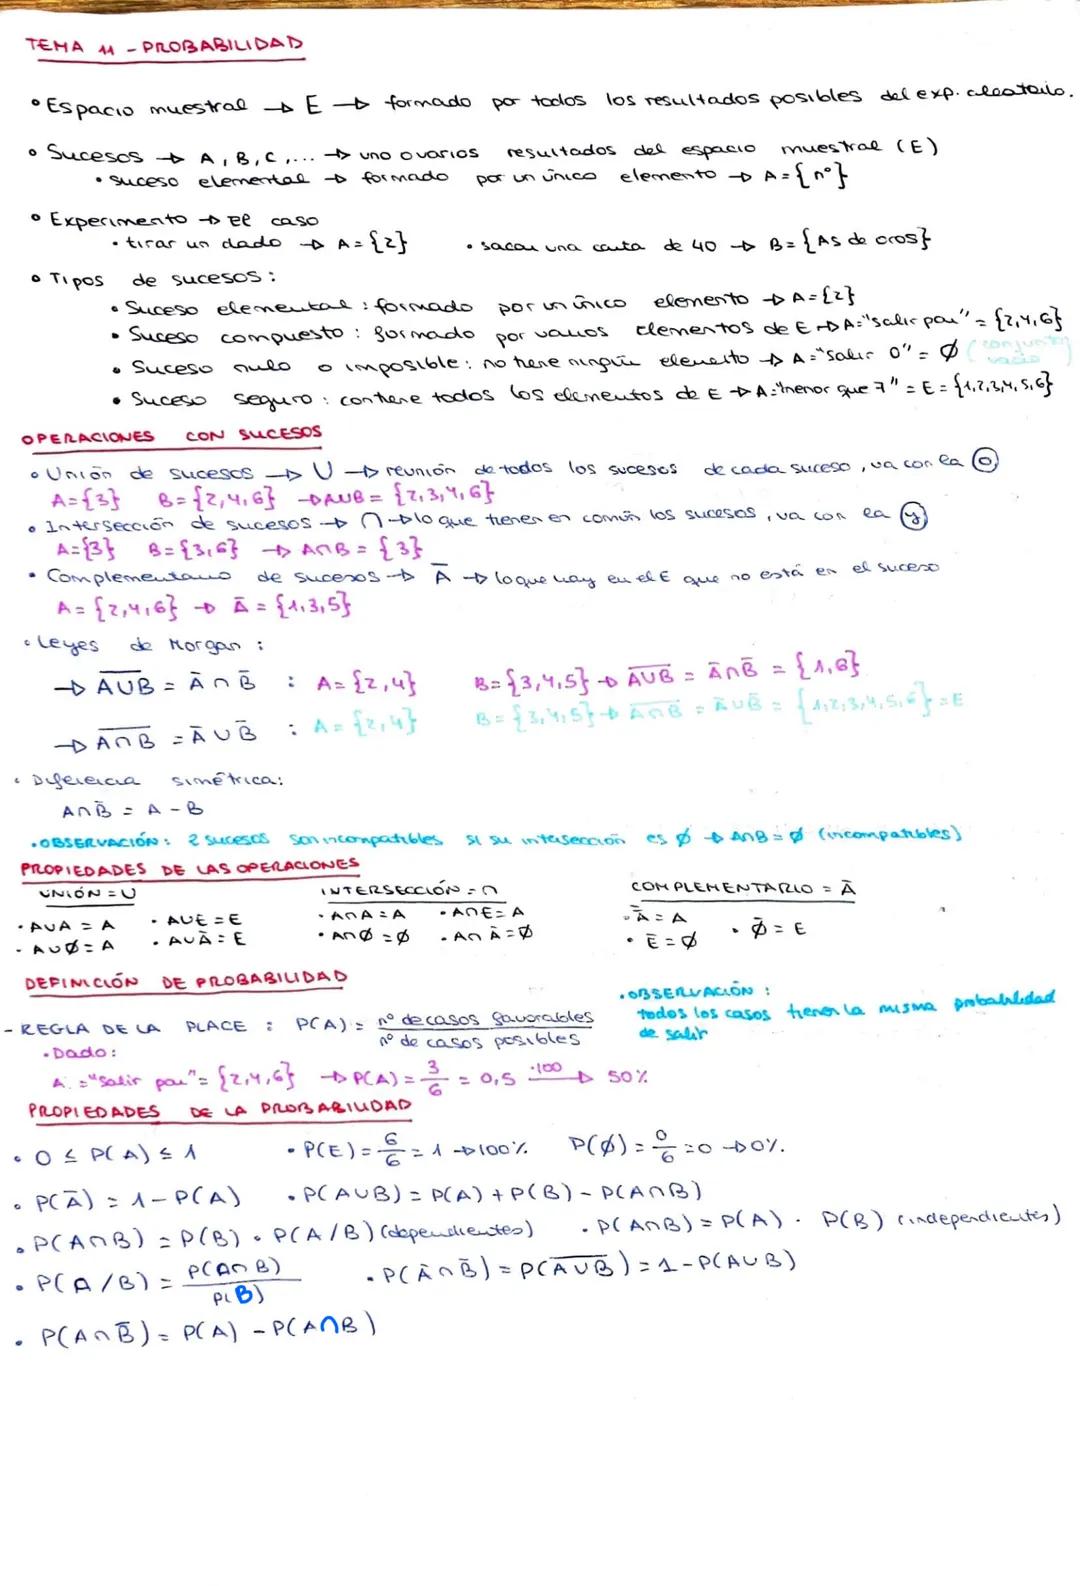 TEMA 11 - PROBABILIDAD
• Espacio muestral → E → formado por todos los resultados posibles del exp. aleatorio.
• Sucesos → A, B, C, ... → uno o varios resultados del espacio muestral (E)
• suceso elemental → formado por un único elemento → A = {nº}
• Experimento → el caso
• tirar un dado → A = {2} • sacar una carta de 40 → B = {As de oros}
• Tipos de sucesos:
• Suceso elemental: formado por un único elemento → A = {2}
• Suceso compuesto: formado por varios elementos de E → A = "salir par" = {2,4,6}
• Suceso nulo o imposible: no tiene ningún elemento → A = "salir 0" = Ø (conjunto vacío)
• Suceso seguro: contiene todos los elementos de E → A: "menor que 7" = E = {1,2,3,4,5,6}
OPERACIONES CON SUCESOS
• Unión de sucesos → U → reunión de todos los sucesos de cada suceso, va con la o
A = {3} B = {2,4,6} → AUB = {2,3,4,6}
• Intersección de sucesos → ∩ → lo que tienen en común los sucesos, va con la y
A = {3} B = {3,6} → A∩B = {3}
• Complementario de sucesos → Ā → lo que hay en el E que no está en el suceso
A = {2,4,6} → Ā = {1,3,5}
• Leyes de Morgan:
→ A̅U̅B̅ = Ā ∩ B̄ : A = {2,4} B = {3,4,5} → A̅U̅B̅ = Ā∩B̄ = {1,6}
→ A̅∩̅B̅ = Ā U B̄ : A = {2,4} B = {3,4,5} → A̅∩̅B̅ = ĀUB̄ = {1,2,3,4,5,6} = E
• Diferencia simétrica:
A∩B̄ = A - B
• OBSERVACIÓN: 2 sucesos son incompatibles si su intersección es Ø → A∩B = Ø (incompatibles)
PROPIEDADES DE LAS OPERACIONES
UNIÓN = U INTERSECCIÓN = ∩ COMPLEMENTARIO = Ā
• AUA = A • AUE = E • A∩A = A • A∩E = A • A̿ = A
• AUØ = A • AUĀ = E • A∩Ø = Ø • A∩Ā = Ø • Ē = Ø • Ø̄ = E
DEFINICIÓN DE PROBABILIDAD
- REGLA DE LA PLACE : P(A) = nº de casos favorables / nº de casos posibles
• OBSERVACIÓN:
todos los casos tienen la misma probabilidad
de salir
• Dado:
A = "Salir par" = {2,4,6} → P(A) = 3/6 = 0,5 ·100→ 50%
PROPIEDADES DE LA PROBABILIDAD
• 0 ≤ P(A) ≤ 1 • P(E) = 6/6 = 1 → 100% P(Ø) = 0/6 = 0 → 0%.
• P(Ā) = 1 - P(A) • P(AUB) = P(A) + P(B) - P(A∩B)
• P(A∩B) = P(B) • P(A/B) (dependientes) • P(A∩B) = P(A) · P(B) (independientes)
• P(A/B) = P(A∩B) / P(B) • P(Ā∩B̄) = P(A̅U̅B̅) = 1 - P(AUB)
• P(A∩B̄) = P(A) - P(A∩B)